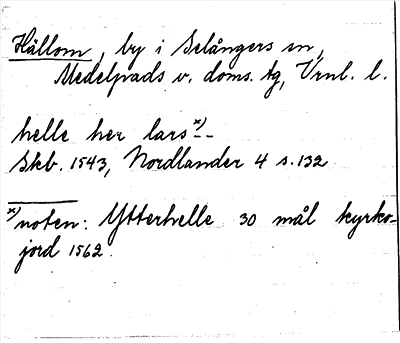 Hällom, by i Selångers sn,
Medelpads v. doms. tg, Vrnl. l.
helle her lars x)
Skb. 1543, Nordlander 4 s. 132
x) noten: Ytterhelle 30 mål kyrko-
jord 1562.